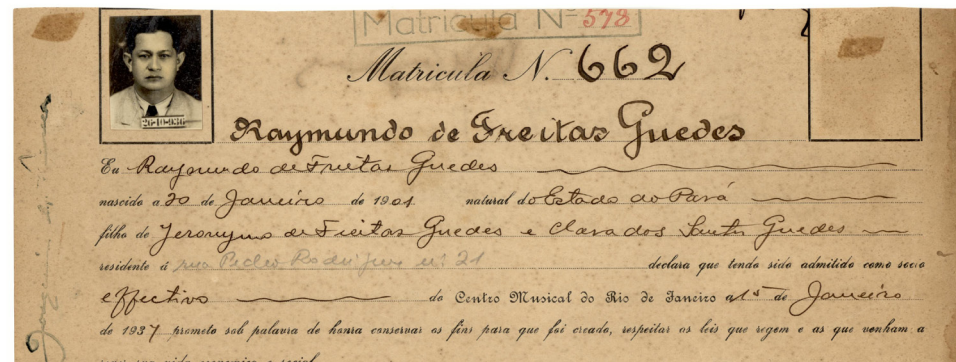 Matricula Nº 578
Matricula N. 662
26-10-936
Raymundo de Freitas Guedes
Eu Raymundo de Freitas Guedes
nascido a 20 de Janeiro de 1901 natural do Estado do Pará
filho de Jeronymo de Freitas Guedes e Clara dos Santos Guedes
residente á rua Pedro Rodrigues nº 21 declara que tendo sido admitido como socio
effectivo do Centro Musical do Rio de Janeiro a 15 de Janeiro
de 1937 prometo sob palavra de honra conservar os fins para que foi creado, respeitar as leis que regem e as que venham a